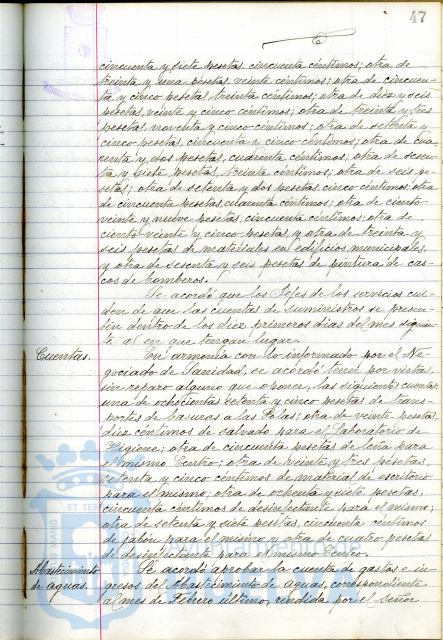 47
cincuenta y siete pesetas, cincuenta céntimos; otra de
treinta y una pesetas, veinte céntimos; otra de cincuen-
ta y cinco pesetas, treinta céntimos; otra de diez y seis
pesetas, veinte y cinco céntimos; otra de treinta y tres
pesetas noventa y cinco céntimos; otra de setenta y
cinco pesetas, cincuenta y cinco céntimos; otra de cua-
renta y dos pesetas, cuarenta céntimos; otra de sesen-
ta y siete pesetas, treinta céntimos; otra de seis pe-
setas; otra de setenta y dos pesetas, cinco céntimos; otra
de cincuenta pesetas, cuarenta céntimos; otra de ciento
veinte y nueve pesetas, cincuenta céntimos; otra de
ciento veinte y cinco pesetas, y otra de treinta y
seis pesetas de materiales en edificios municipales,
y otra de sesenta y seis pesetas de pintura de cas-
cos de bomberos.
Se acordó que los Jefes de los servicios cui-
den de que las cuentas de suministros se presen-
ten dentro de los diez primeros dias del mes siguien-
te al en que tengan lugar.
Cuentas. En armonía con lo informado por el Ne-
gociado de Sanidad, se acordó tener por vistas,
sin reparo alguno que oponer, las siguientes cuentas:
una de ochocientas setenta y cinco pesetas de trans-
portes de basuras a las Solas; otra de veinte pesetas,
diez céntimos de salvado para el Laboratorio de
Higiene; otra de cincuenta pesetas de leña para
el mismo Centro; otra de veinte y tres pesetas,
setenta y cinco céntimos de material de escritorio
para el mismo; otra de ochenta y siete pesetas,
cincuenta céntimos de desinfectante para el mismo;
otra de setenta y siete pesetas, cincuenta céntimos
de jabón para el mismo y otra de cuatro pesetas
de desinfectante para el mismo Centro.
Abastecimiento Se acordó aprobar la cuenta de gastos e in-
de aguas. gresos del Abastecimiento de aguas, correspondiente
al mes de Febrero último, rendida por el Señor